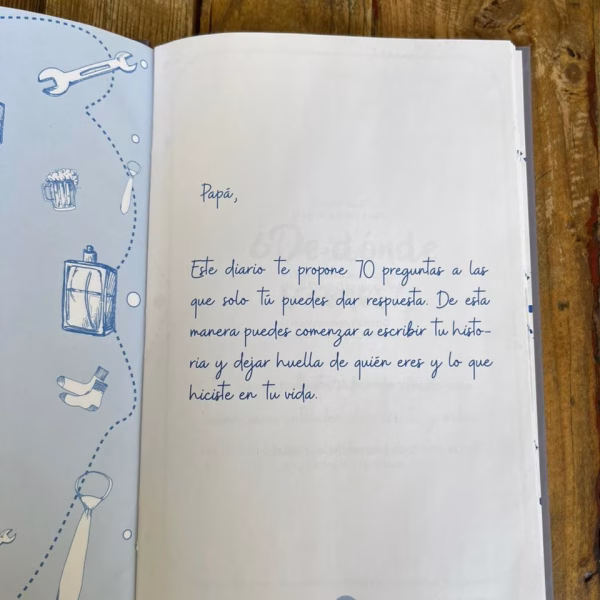 Papá,
Este diario te propone 70 preguntas a las
que solo tú puedes dar respuesta. De esta
manera puedes comenzar a escribir tu histo-
ria y dejar huella de quién eres y lo que
hiciste en tu vida.